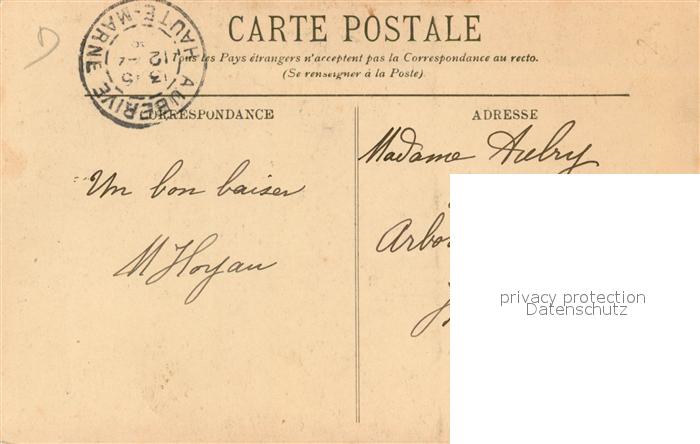 CARTE POSTALE
Tous les Pays étrangers n'acceptent pas la Correspondance au recto.
(Se renseigner à la Poste)
AUBERIVE
HAUTE-MARNE
CORRESPONDANCE
ADRESSE
Madame Aubry
Un bon baiser
Arbo
privacy protection
Datenschutz